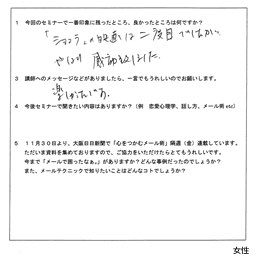 1 今回のセミナーで一番印象に残ったところ、良かったところは何ですか？
「ショコラ」の映画は二度目ですが、
やはり感動しました。
3 講師へのメッセージなどがありましたら、一言でもうれしいのでお願いします。
楽しかったです。
4 今後セミナーで聞きたい内容はありますか？（例 恋愛心理学、話し方、メール術 etc）
5 １１月３０日より、大阪日日新聞で「心をつかむメール術」隔週（金）連載しています。
ただいま資料を集めておりますので、ご協力をいただけたらとてもうれしいです。
今まで「メールで困ったなぁ。」がありますか？どんな事例だったのでしょうか？
また、メールテクニックで知りたいことはどんなコトでしょうか？
女性